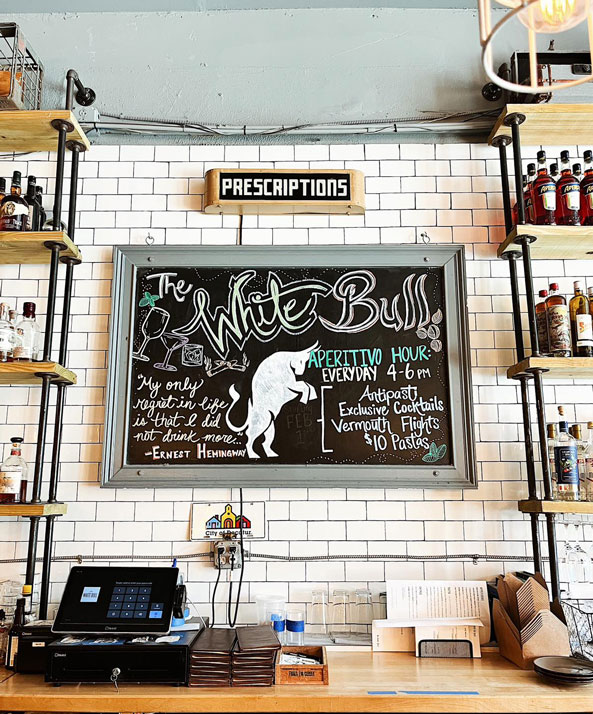 PRESCRIPTIONS
The White Bull
APERITIVO HOUR:
EVERYDAY 4-6 PM
Antipasti
Exclusive Cocktails
Vermouth Flights
$10 Pastas
"My only
regret in life
is that I did
not drink more..."
-ERNEST HEMINGWAY
City of Decatur
WHITE BULL